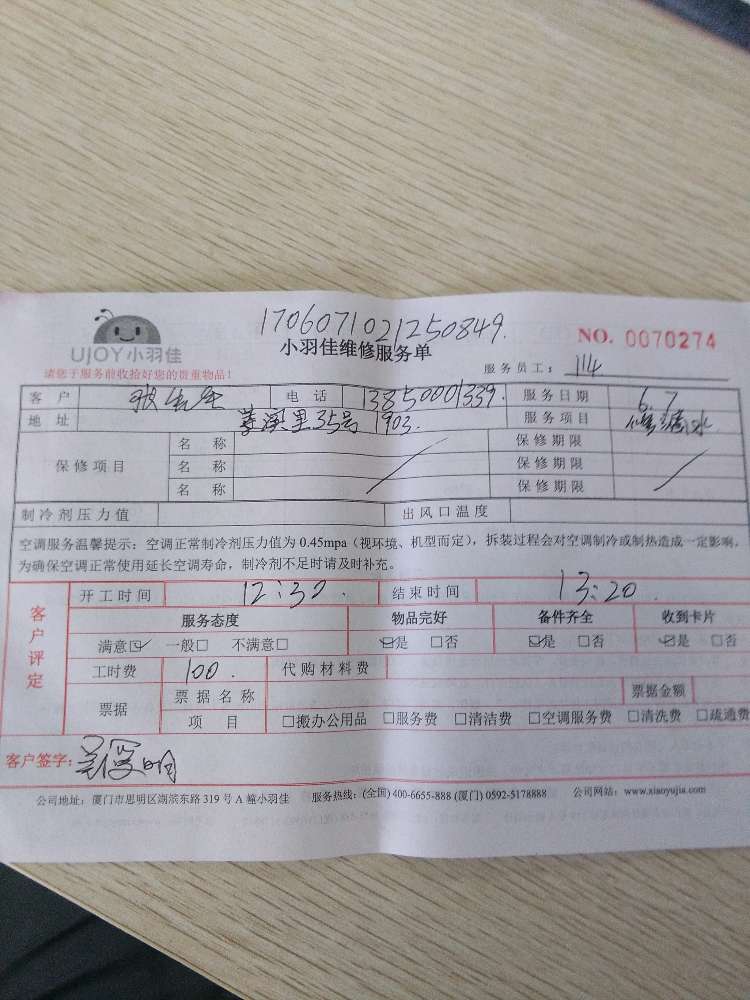 1706071021250849.
UJOY小羽佳
小羽佳维修服务单
NO. 0070274
请您于服务前收拾好您的贵重物品!
服务员工: 114
客户 电话 13850001339. 服务日期 6.7
地址 里35号 1903. 服务项目 修漏水
名称 保修期限
保修项目 名称 保修期限
名称 保修期限
制冷剂压力值 出风口温度
空调服务温馨提示:空调正常制冷剂压力值为 0.45mpa(视环境、机型而定),拆装过程会对空调制冷或制热造成一定影响,
为确保空调正常使用延长空调寿命,制冷剂不足时请及时补充。
客户评定
开工时间 12:30. 结束时间 13:20
服务态度 物品完好 备件齐全 收到卡片
满意☑ 一般□ 不满意□ ☑是 □否 ☑是 □否 ☑是 □否
工时费 100. 代购材料费
票据 票据名称 票据金额
项目 □搬办公用品 □服务费 □清洁费 □空调服务费 □清洗费 □疏通费
客户签字: 明
公司地址:厦门市思明区湖滨东路 319 号 A 幢小羽佳 服务热线:(全国) 400-6655-888 (厦门) 0592-5178888 公司网站:www.xiaoyujia.com